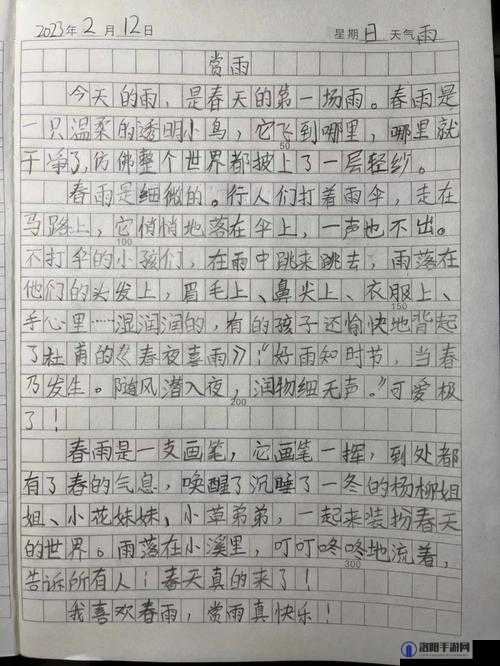 2023年2月12日 星期日 天气雨
赏雨
今天的雨，是春天的第一场雨。春雨是
一只温柔的透明小鸟，它飞到哪里，哪里就
干净了，仿佛整个世界都披上了一层轻纱。
春雨是细微的。行人们打着雨伞，走在
马路上，它悄悄地落在伞上，一声也不出。
不打伞的小孩们，在雨中跳来跳去，雨落在
他们的头发上，眉毛上、鼻尖上、衣服上、
手心里……湿润润的，有的孩子还愉快地背起
了杜甫的《春夜喜雨》：“好雨知时节，当春
乃发生。随风潜入夜，润物细无声。”可爱极
了！
春雨是一支画笔，它画笔一挥，到处都
有了春的气息，唤醒了沉睡了一冬的杨柳姐
姐、小花妹妹、小草弟弟，一起来装扮春天
的世界。雨落在小溪里，叮叮咚咚地流着，
告诉所有人：春天真的来了！
我喜欢春雨，赏雨真快乐！
50
100
150
200
300
洛阳手游网